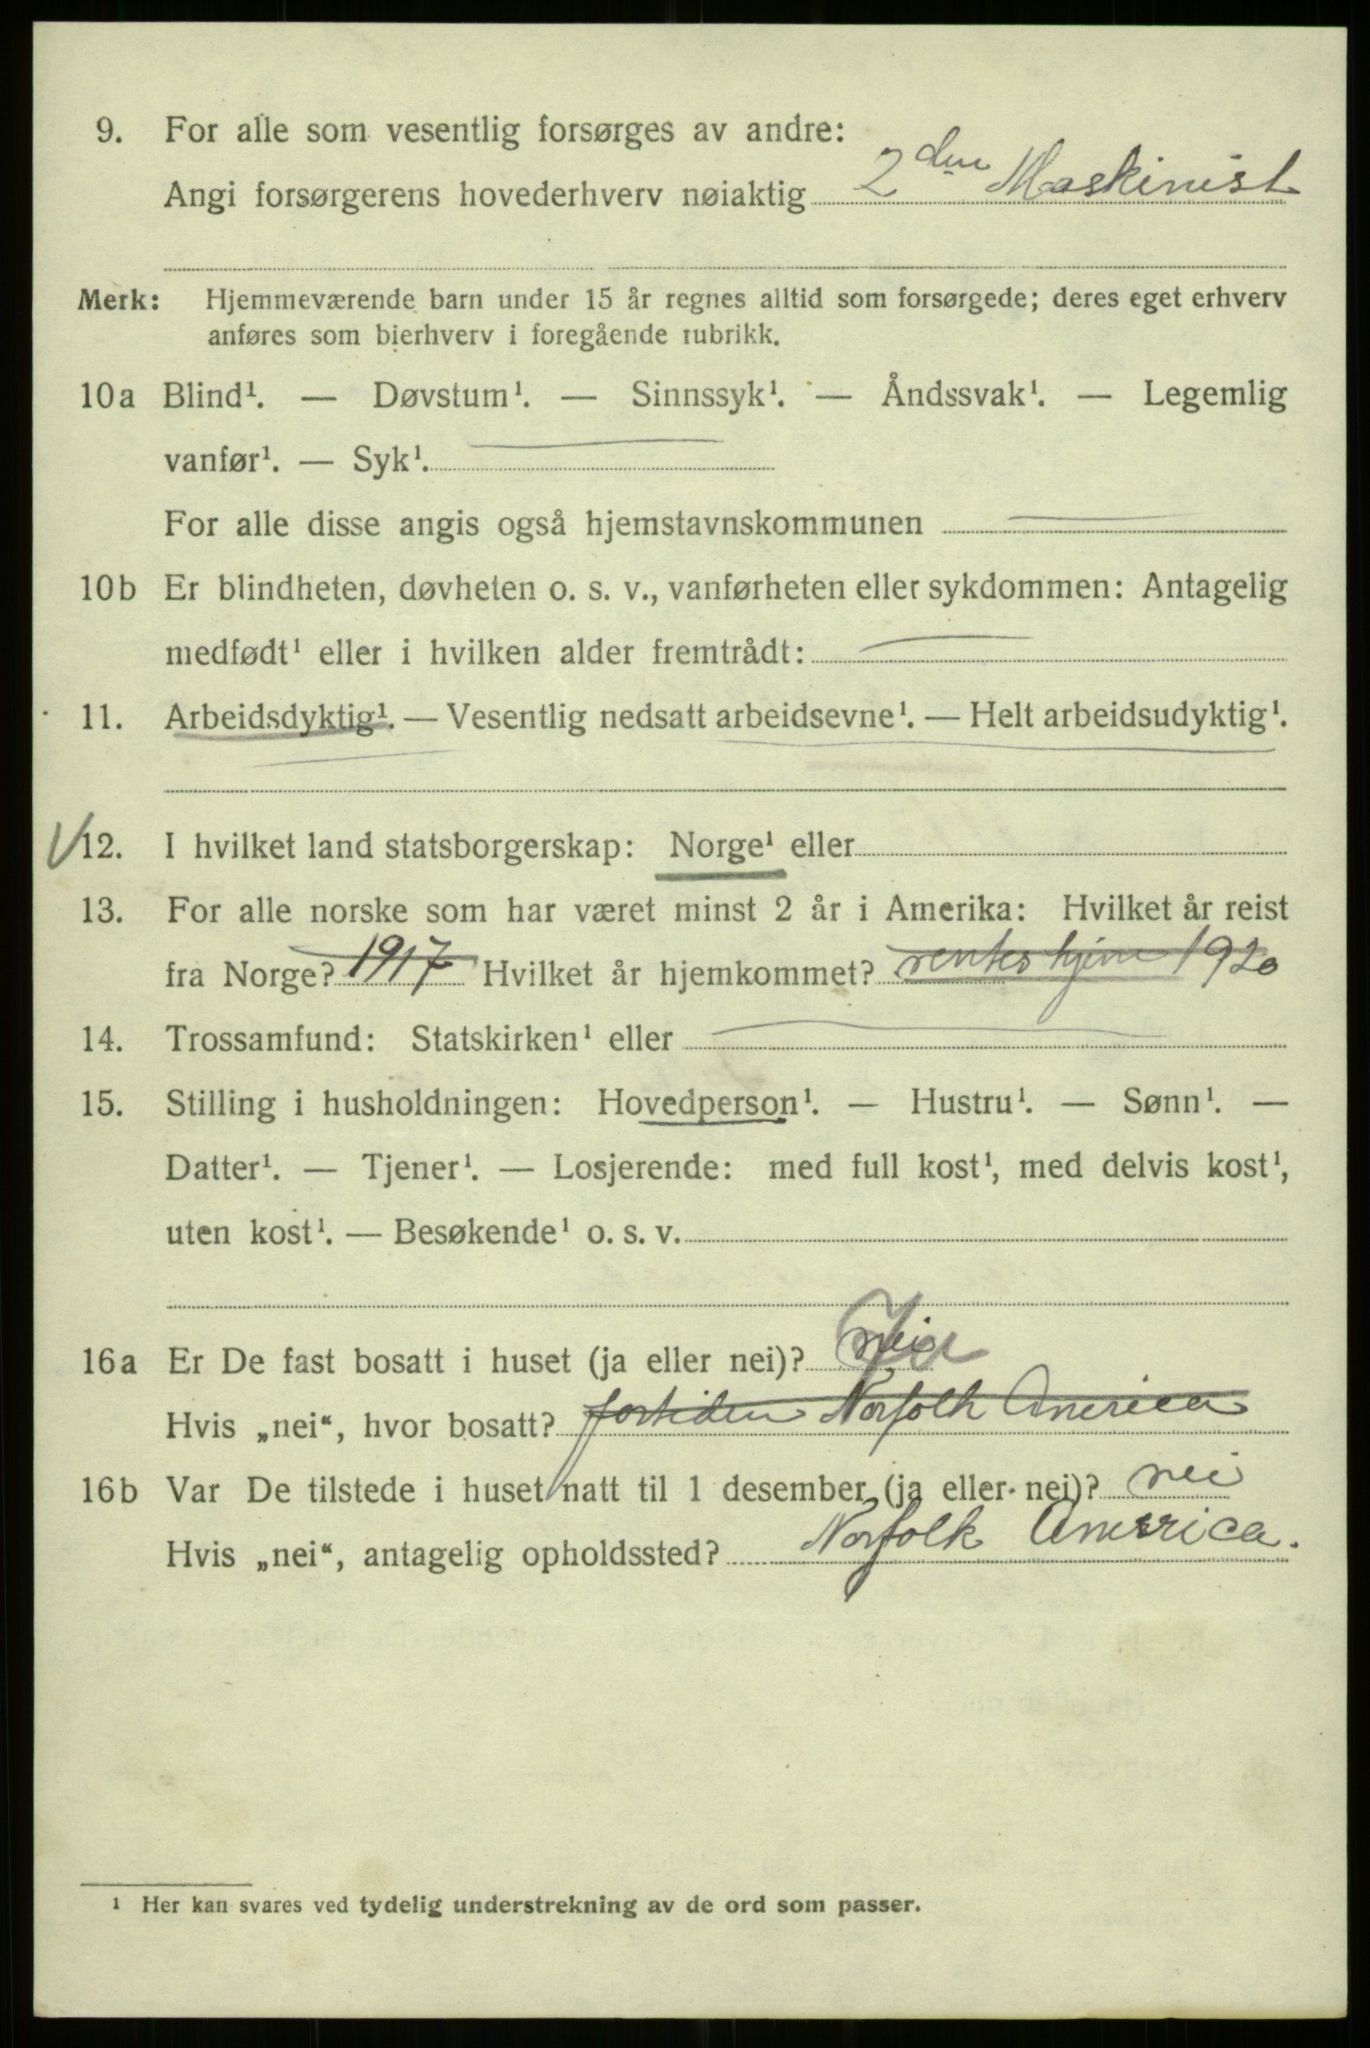 9. For alle som vesentlig forsørges av andre:
Angi forsørgerens hovederhverv nøiaktig 2den Maskinist
Merk: Hjemmeværende barn under 15 år regnes alltid som forsørgede; deres eget erhverv
anføres som bierhverv i foregående rubrikk.
10a Blind¹. — Døvstum¹. — Sinnssyk¹. — Åndssvak¹. — Legemlig
vanfør¹. — Syk¹.
For alle disse angis også hjemstavnskommunen
10b Er blindheten, døvheten o. s. v., vanførheten eller sykdommen: Antagelig
medfødt¹ eller i hvilken alder fremtrådt:
11. Arbeidsdyktig¹. — Vesentlig nedsatt arbeidsevne¹. — Helt arbeidsudyktig¹.
12. I hvilket land statsborgerskap: Norge¹ eller
13. For alle norske som har været minst 2 år i Amerika: Hvilket år reist
fra Norge? 1917 Hvilket år hjemkommet? ventes hjem 1920
14. Trossamfund: Statskirken¹ eller
15. Stilling i husholdningen: Hovedperson¹. — Hustru¹. — Sønn¹. —
Datter¹. — Tjener¹. — Losjerende: med full kost¹, med delvis kost¹,
uten kost¹. — Besøkende¹ o. s. v.
16a Er De fast bosatt i huset (ja eller nei)? nei Ja
Hvis „nei“, hvor bosatt? fortiden Norfolk America
16b Var De tilstede i huset natt til 1 desember (ja eller nei)? nei
Hvis „nei“, antagelig opholdssted? Norfolk America.
¹ Her kan svares ved tydelig understrekning av de ord som passer.